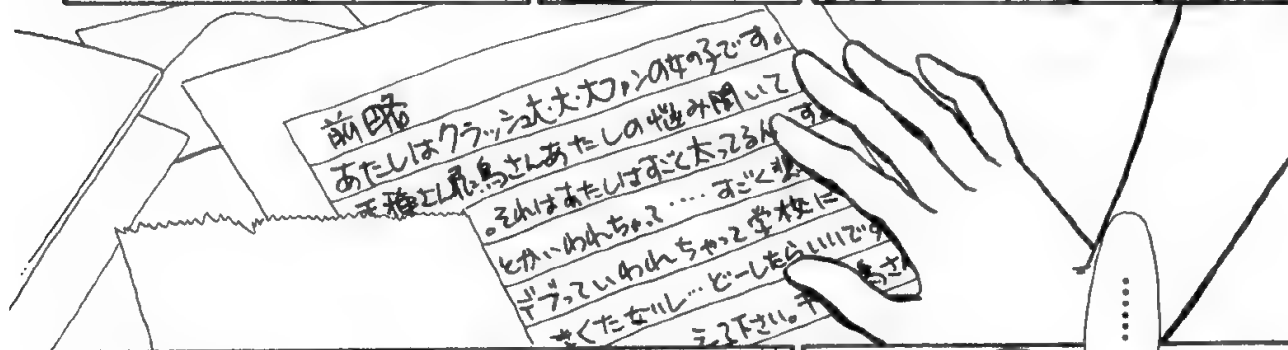 前略
あたしはクラッシュ大・大・大ファンの女の子です。
さん飛鳥さんあたしの悩み聞いて
。それはあたしはすごく太ってるん す。
とかいわれちゃって‥‥すごく
デブっていわれちゃって学校に
きくたないし…どーしたらいいです
鳥さ
え て下さい。
……